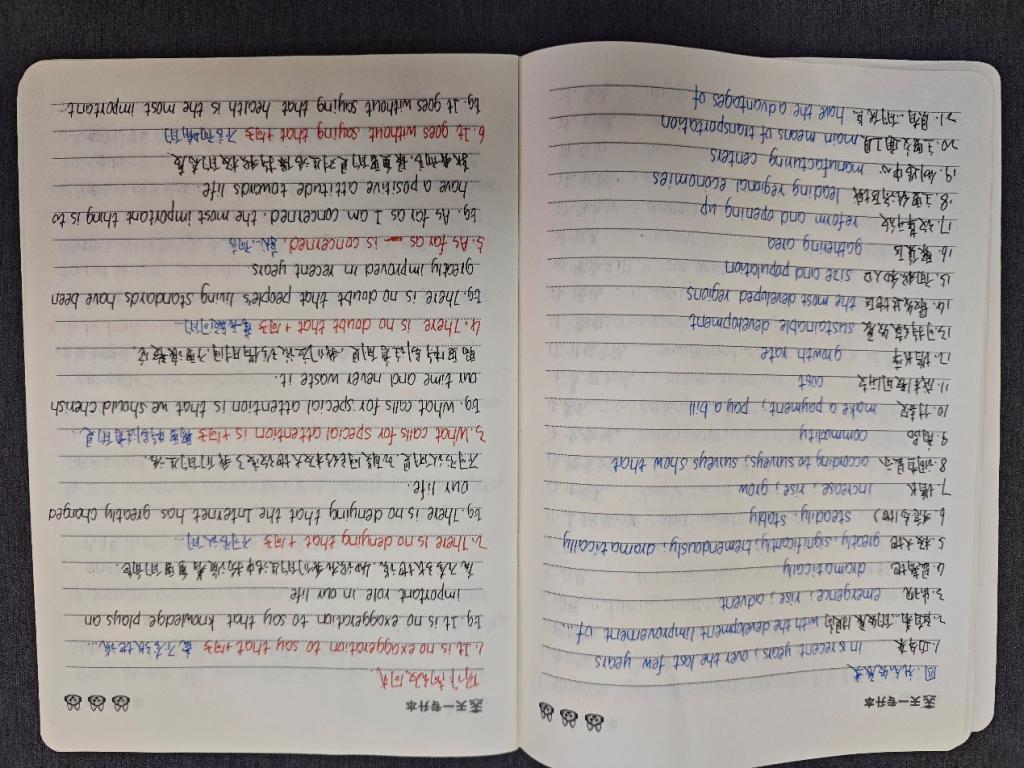 孟天一专升本
四.社会发展类
1.近年来 in recent years; over the last few years
2.随着…的发展(提高) with the development / improvement of…
3.出现 emergence; rise; advent
4.显著地 dramatically
5.极大地 greatly; significantly; tremendously; dramatically
6.稳(the) steadily, stably
7.增长 increase; rise; grow
8.调查显示 according to surveys; surveys show that
9.商品 commodity
10.付款 make a payment; pay a bill
11.花费 cost
12.增长率 growth rate
13.可持续发展 sustainable development
14.最发达地区 the most developed regions
15.面积和人口 size and population
16.聚集区 gathering area
17.改革开放 reform and opening up
18.主要经济区域 leading regional economies
19.制造中心 manufacturing centers
20.主要交通工具 main means of transportation
21.具有…的优点 have the advantages of
孟天一专升本
1. It is no exaggeration to say that +句子 毫不夸张地说…
Eg. It is no exaggeration to say that knowledge plays an
important role in our life
2. There is no denying that +句子 不可否认的…
Eg. There is no denying that the Internet has greatly changed
our life.
3. What calls for special attention is +句子 需要特别注意的是…
Eg. What calls for special attention is that we should cherish
our time and never waste it.
4. There is no doubt that +句子 毫无疑问的…
Eg. There is no doubt that people's living standards have been
greatly improved in recent years
5. As far as … is concerned, 就…而言
Eg. As far as I am concerned, the most important thing is to
have a positive attitude towards life
就我而言,最重要的是对生活保持积极的态度
6. It goes without saying that +句子 不言而喻的
Eg. It goes without saying that health is the most important.